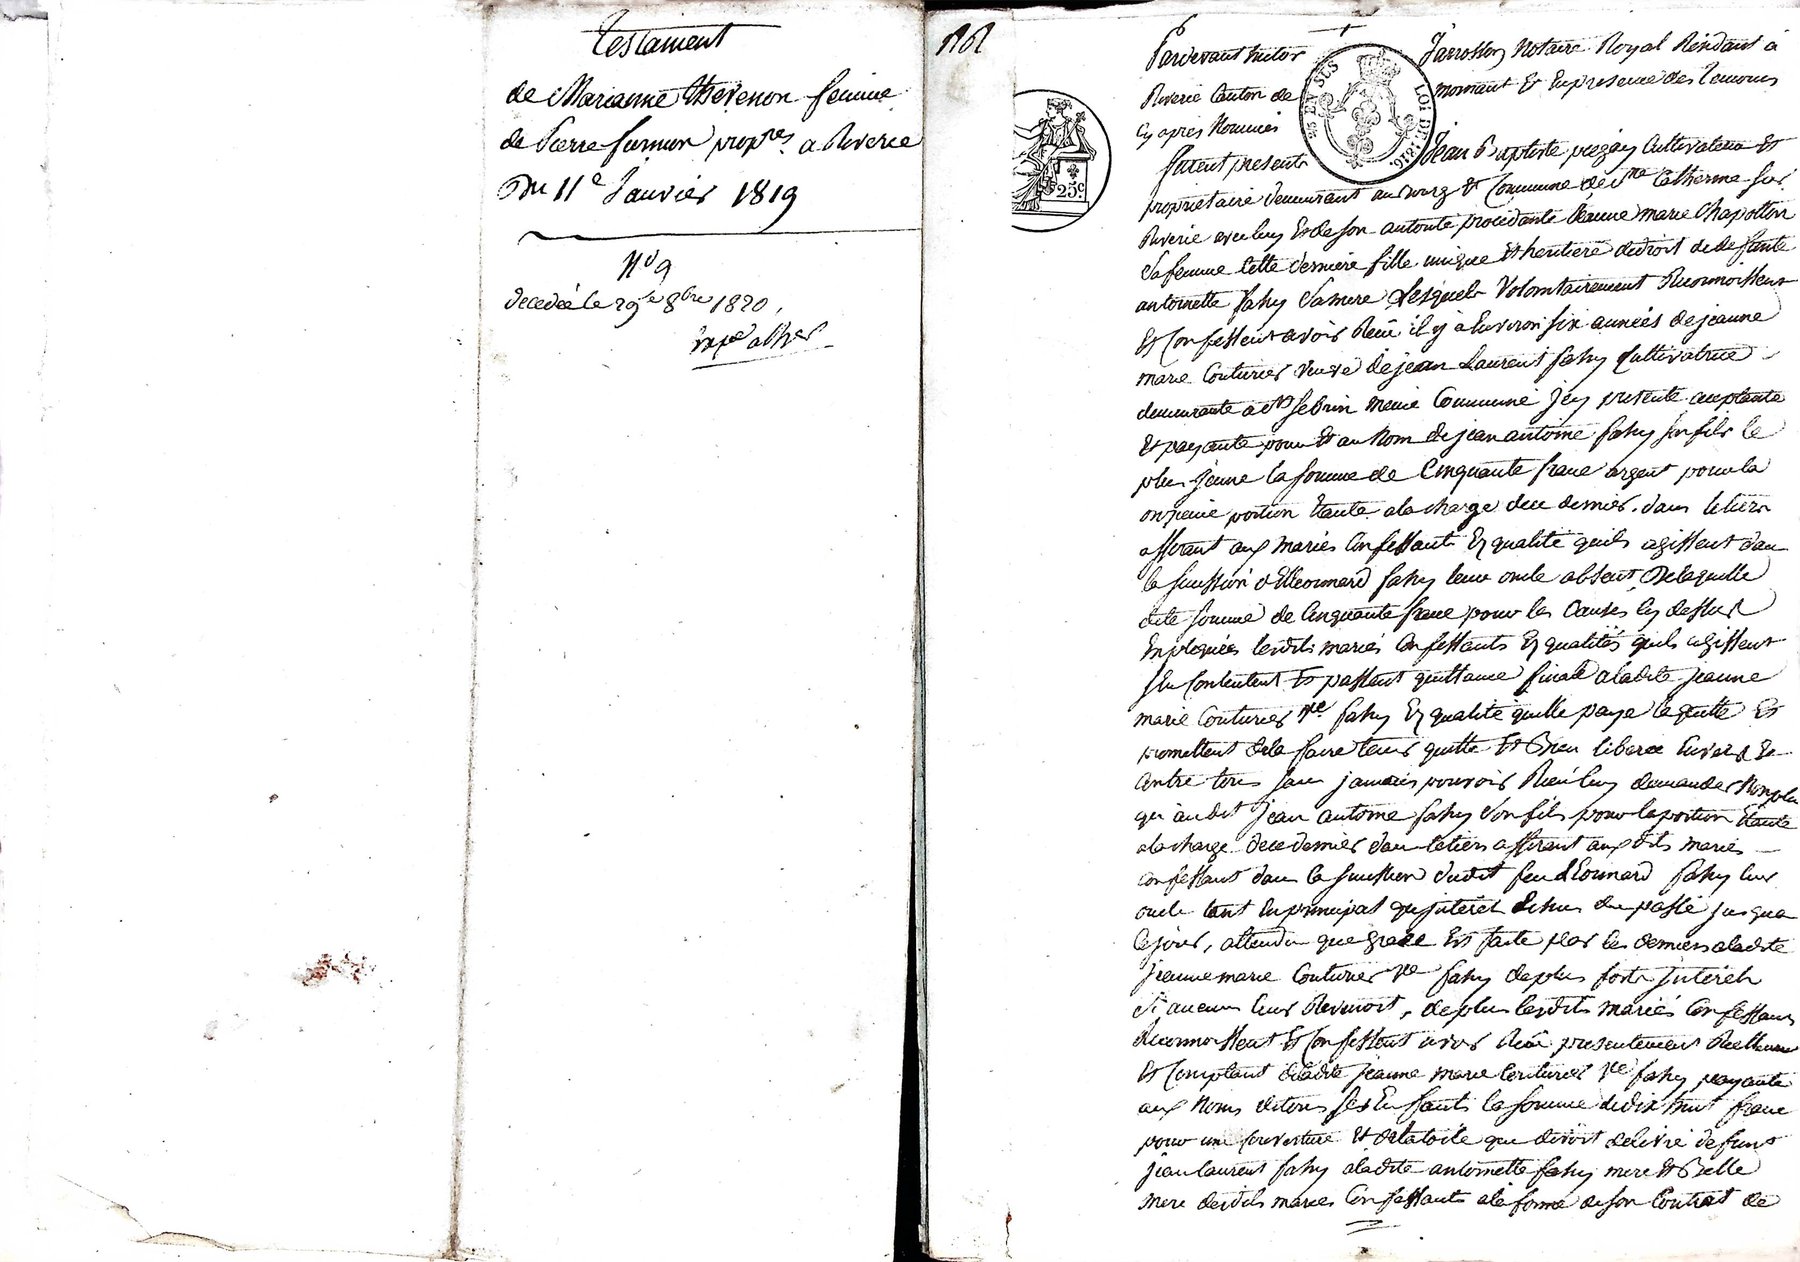 Testament
de Marianne Thevenon femme
de Pierre furnon prop.res a Riverie
Du 11e Janvier 1819
N° 9
decedée le 29e 8bre 1820,
Pardevant Victor Jarrosson Notaire Royal Résidant à
Riverie Canton de mornant Et En presence des Temoins
Cy après Nommés
furent presents Jean Baptiste piegay Cultivateur Et
proprietaire demeurant au bourg Et Commune de Ste Catherine sur
Riverie Et de son autorité procédante Jeanne marie Chapotton
Sa femme Cette dernière fille unique Et heritiere de droit de deffunte
antoinette fahy Sa mere Lesquels Volontairement Reconnoissent
Et Confessent avoir Reçu il y à Environ six années de jeanne
marie Couturier veuve de jean Laurent fahy Cultivatrice
demeurante a St Sebrin meme Commune Icy presente acceptante
Et payante pour Et au Nom de jean antoine fahy son fils le
plus jeune la somme de Cinquante franc argent pour la
onzieme portion Etante a la charge de ce dernier dans le tiers
afferant aux mariés Confessants Es qualité quils agissent dans
la sucession d'Eleonnard fahy leur oncle absent De laquelle
dite somme de Cinquante franc pour les Causes Cy dessus
Employées lesdits mariés Confessants Es qualités quils agissent
Se Contentent Et passent quittance finale a ladite jeanne
marie Couturier Ve fahy Es qualité quelle paye la quitte Et
promettent de la faire tenir quitte Et Bien liberée Envers Et
Contre tous sans jamais pouvoir Rien luy demander Nonplus
qu'audit Jean antoine fahy Son fils pour la portion Etante
a la charge de ce dernier dans le tiers afferant aux dits mariés
Confessants dans la sucession dudit feu Léonnard fahy leur
oncle tant En principal qu'interêt Echus du passé jusqua
Ce jour, attendu que grace Est faite par les derniers a ladite
jeanne marie Couturier Ve fahy de plus forts Interêts
Si aucuns leur Revenoit, de plus lesdits mariés Confessants
Reconnoissent Et Confessent avoir Reçu presentement Reellement
Et Comptant de ladite jeanne marie Couturier Ve fahy payante
aux Noms de tous ses Enfants la somme de dix huit franc
pour une Couverture Et de la toile que devoit delivré defunt
Jean laurent fahy a ladite antoinette fahy mere Et Belle
mere desdits mariés Confessants a la forme de son Contrat de
25 EN SUS
LOI DE 1816
25c